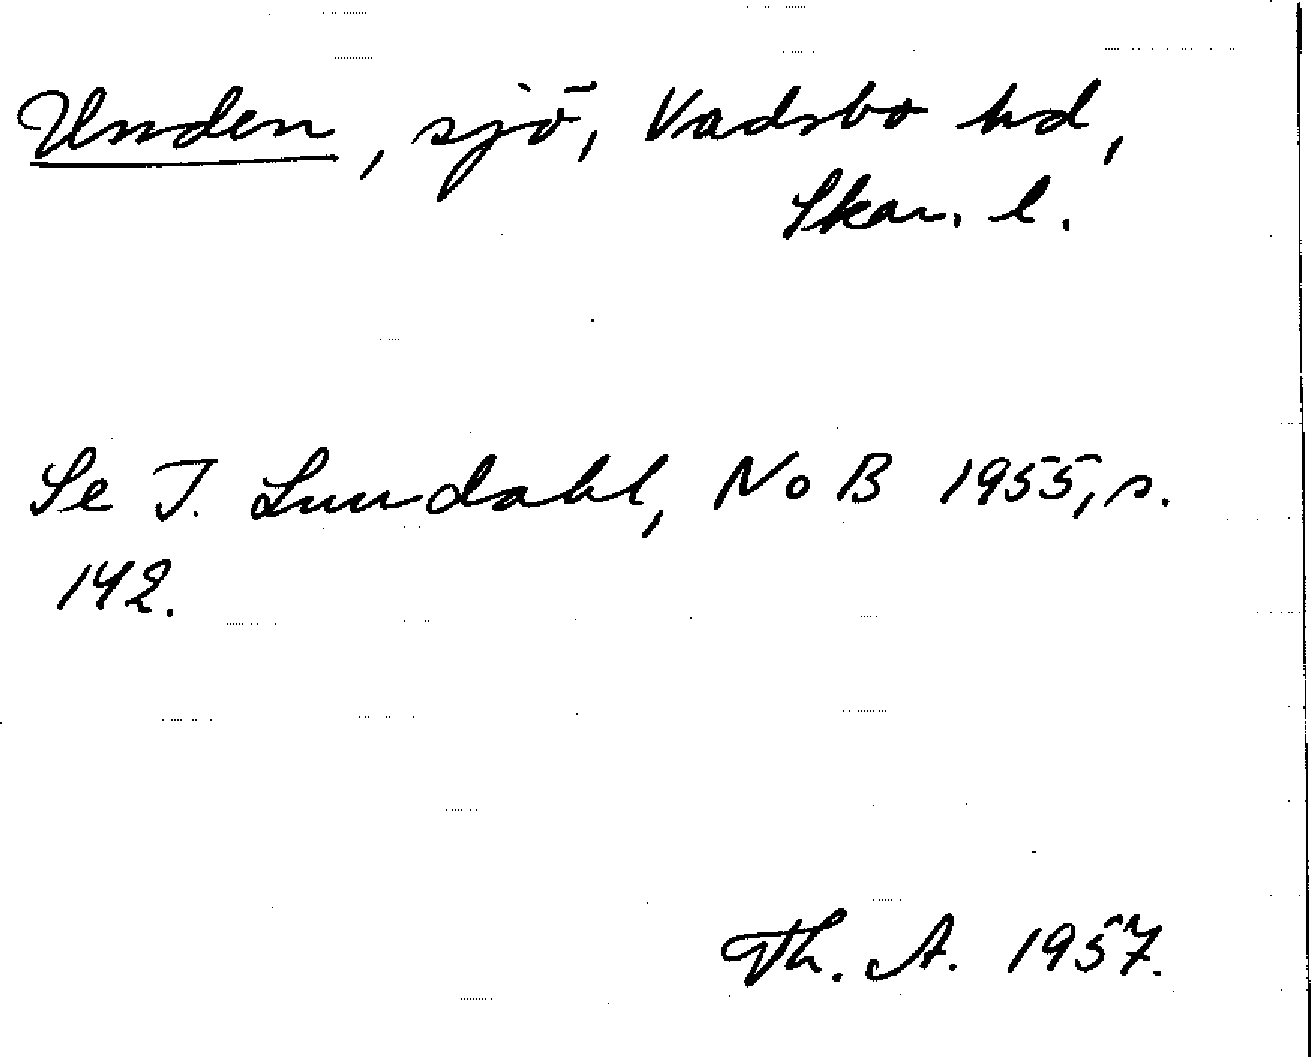 Unden, sjö, Vadsbo hd,
Skar. l.
Se I. Lundahl, NoB 1955, s.
142.
Th. A. 1957.